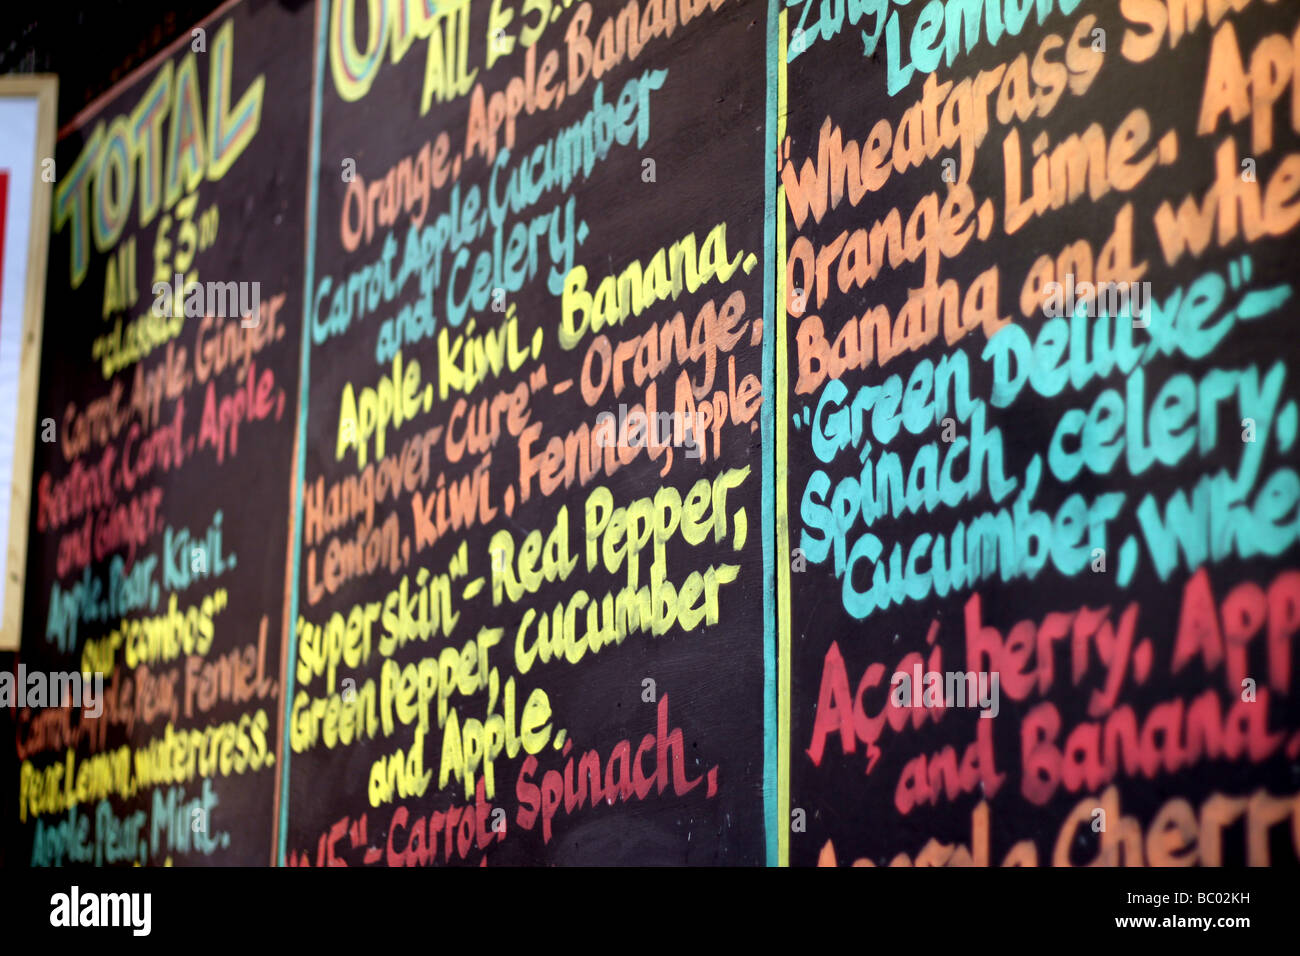 TOTAL
All £3"
"classes"
Carrot, Apple, Ginger.
Beetroot, Carrot, Apple,
and Ginger.
Apple, Pear, Kiwi.
our "combos"
Carrot, Apple, Pear, Fennel.
Pear, Lemon, watercress.
Apple, Pear, Mint.
All £3
Orange, Apple, Banana
Carrot, Apple, Cucumber
and Celery.
Apple, Kiwi, Banana.
Hangover Cure" - Orange,
Lemon, Kiwi, Fennel, Apple
"Super skin" - Red Pepper,
Green Pepper, cucumber
and Apple.
"- Carrot, Spinach,
Lemon
"Wheatgrass
Orange, Lime.
Banana and
"Green Deluxe" -
Spinach, celery,
Cucumber,
Açai berry,
and Banana.
Cherry
alamy
Image ID: BC02KH
www.alamy.com